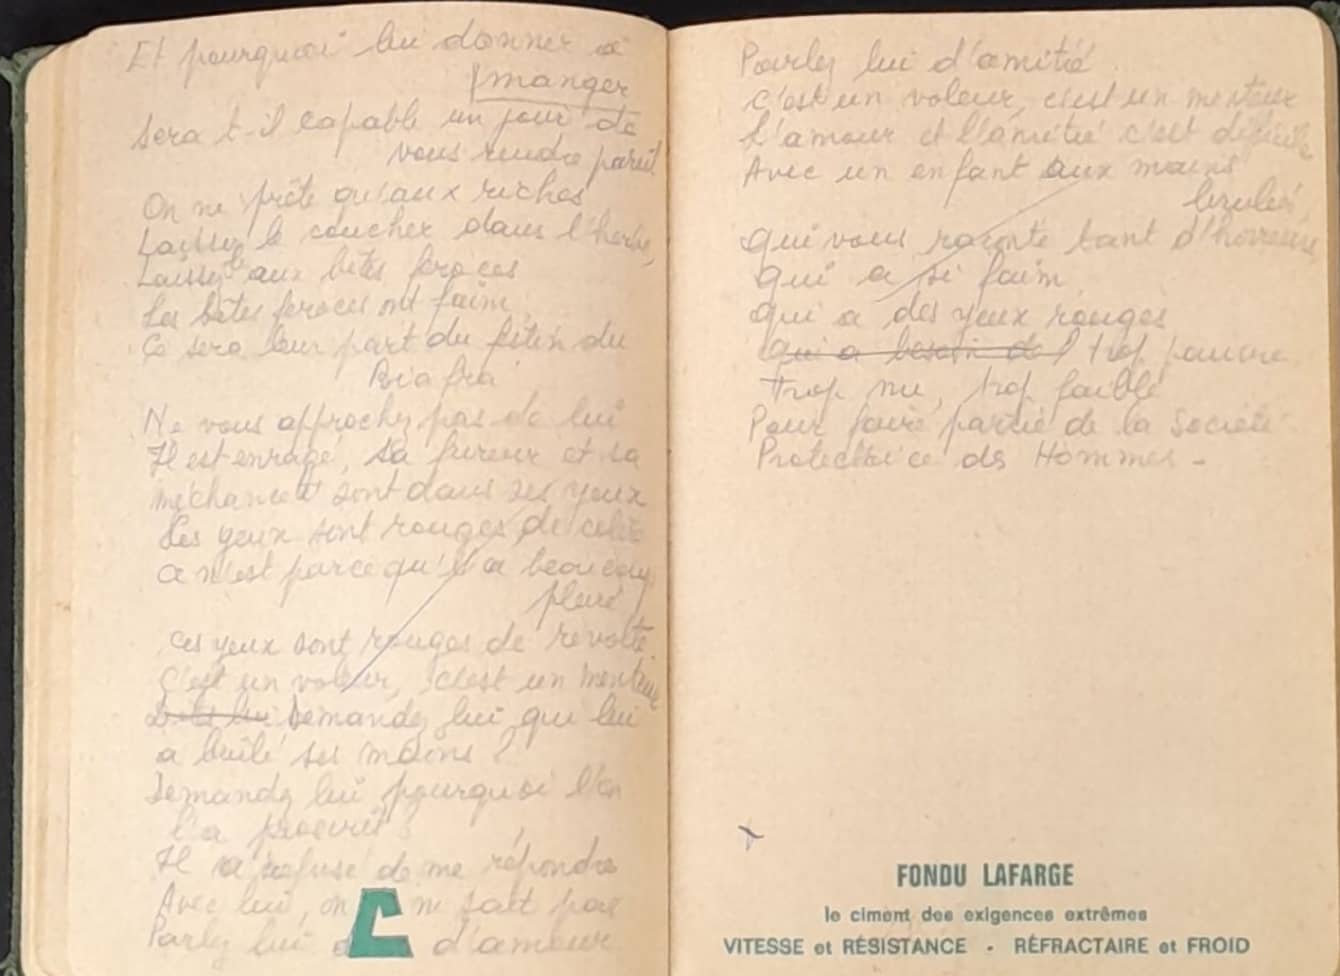 Et pourquoi lui donner à
manger
Sera t-il capable un jour de
vous rendre pareil
On ne prête qu'aux riches
Laissez le coucher dans l'herbe,
Laissez le aux bêtes féroces
Les bêtes féroces ont faim
Ce sera leur part du festin du
Biafra
Ne vous approchez pas de lui
Il est enragé, sa fureur et sa
méchanceté sont dans ses yeux
Ses yeux sont rouges de colère
Ce n'est parce qu'il a beaucoup
pleuré
Ces yeux sont rouges de révolte
C'est un voleur, c'est un menteur
Demandez lui qui lui
a brûlé ses mains ?
Demandez lui pourquoi l'on
l'a proscrit ?
Il a refusé de me répondre
Avec lui, on ne sait pas
Parlez lui d'amour
Parlez lui d'amitié
C'est un voleur, c'est un menteur
L'amour et l'amitié c'est difficile
Avec un enfant aux mains
brulées,
qui vous raconte tant d'horreurs
qui a si faim
qui a des yeux rouges
qui a besoin d trop pauvre
trop nu, trop faible
Pour faire partie de la Société
Protectrice des Hommes -
FONDU LAFARGE
le ciment des exigences extrêmes
VITESSE et RÉSISTANCE - RÉFRACTAIRE et FROID